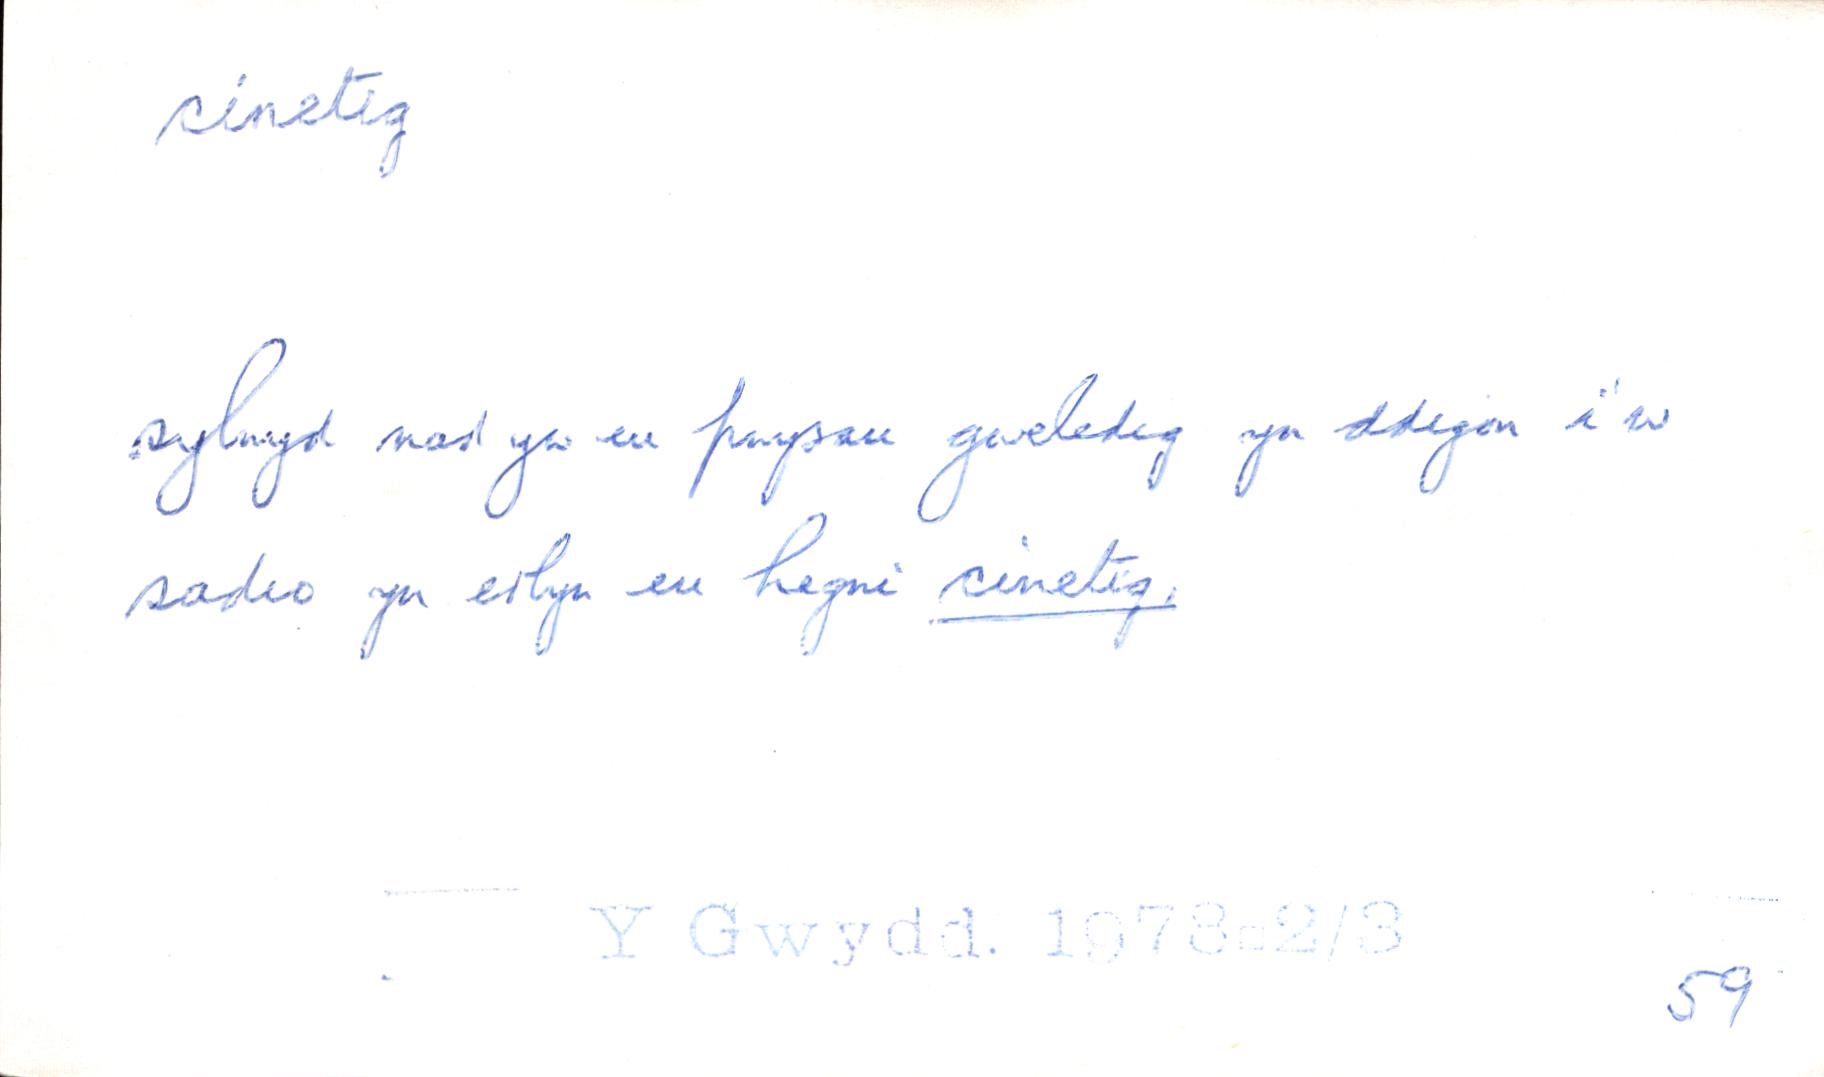 cinetig
sylwyd nad yw eu pwysau gweledig yn ddigon i'w
sadio yn erbyn eu hegni cinetig.
Y Gwydd. 1978-2/3
59